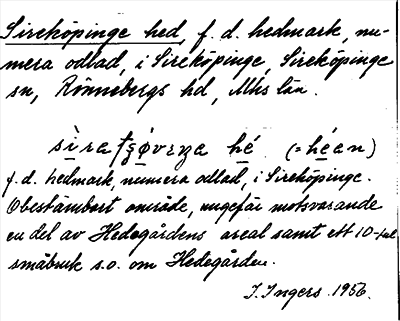 Sireköpinge hed, f. d. hedmark, nu-
mera odlad, i Sireköpinge, Sireköpinge
sn, Rönnebergs hd, Mhs län.
hé (= héan)
f. d. hedmark, numera odlad, i Sireköpinge.
Obestämbart område, ungefär motsvarande
en del av Hedegårdens areal samt ett 10-tal
småbruk s.o. om Hedegården.
I. Ingers 1956.